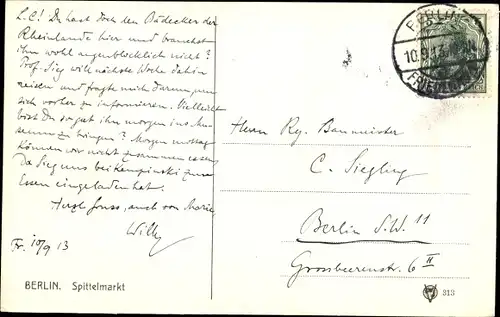 L.C! Du hast doch den Bädecker der
Rheinlande hier und brauchst
ihn wohl augenblicklich nicht?
Prof. Sieg will nächste Woche dahin
reisen und fragte mich darum, um
sich vorher zu informieren. Vielleicht
bist Du so gut ihn morgen ins Mu
seum zu bringen? Morgen mittag
können wir nicht zusammen essen
da Sieg uns bei Kempinski zum
Essen eingeladen hat.
Herzl. Gruss, auch von Marie
Willy
Fr. 10/9 13
BERLIN. Spittelmarkt
BERLIN
10.9.13
FRIEDENAU
Herrn Reg. Baumeister
C. Siegling
Berlin S.W. 11
Grossbeerenstr. 6 II
313